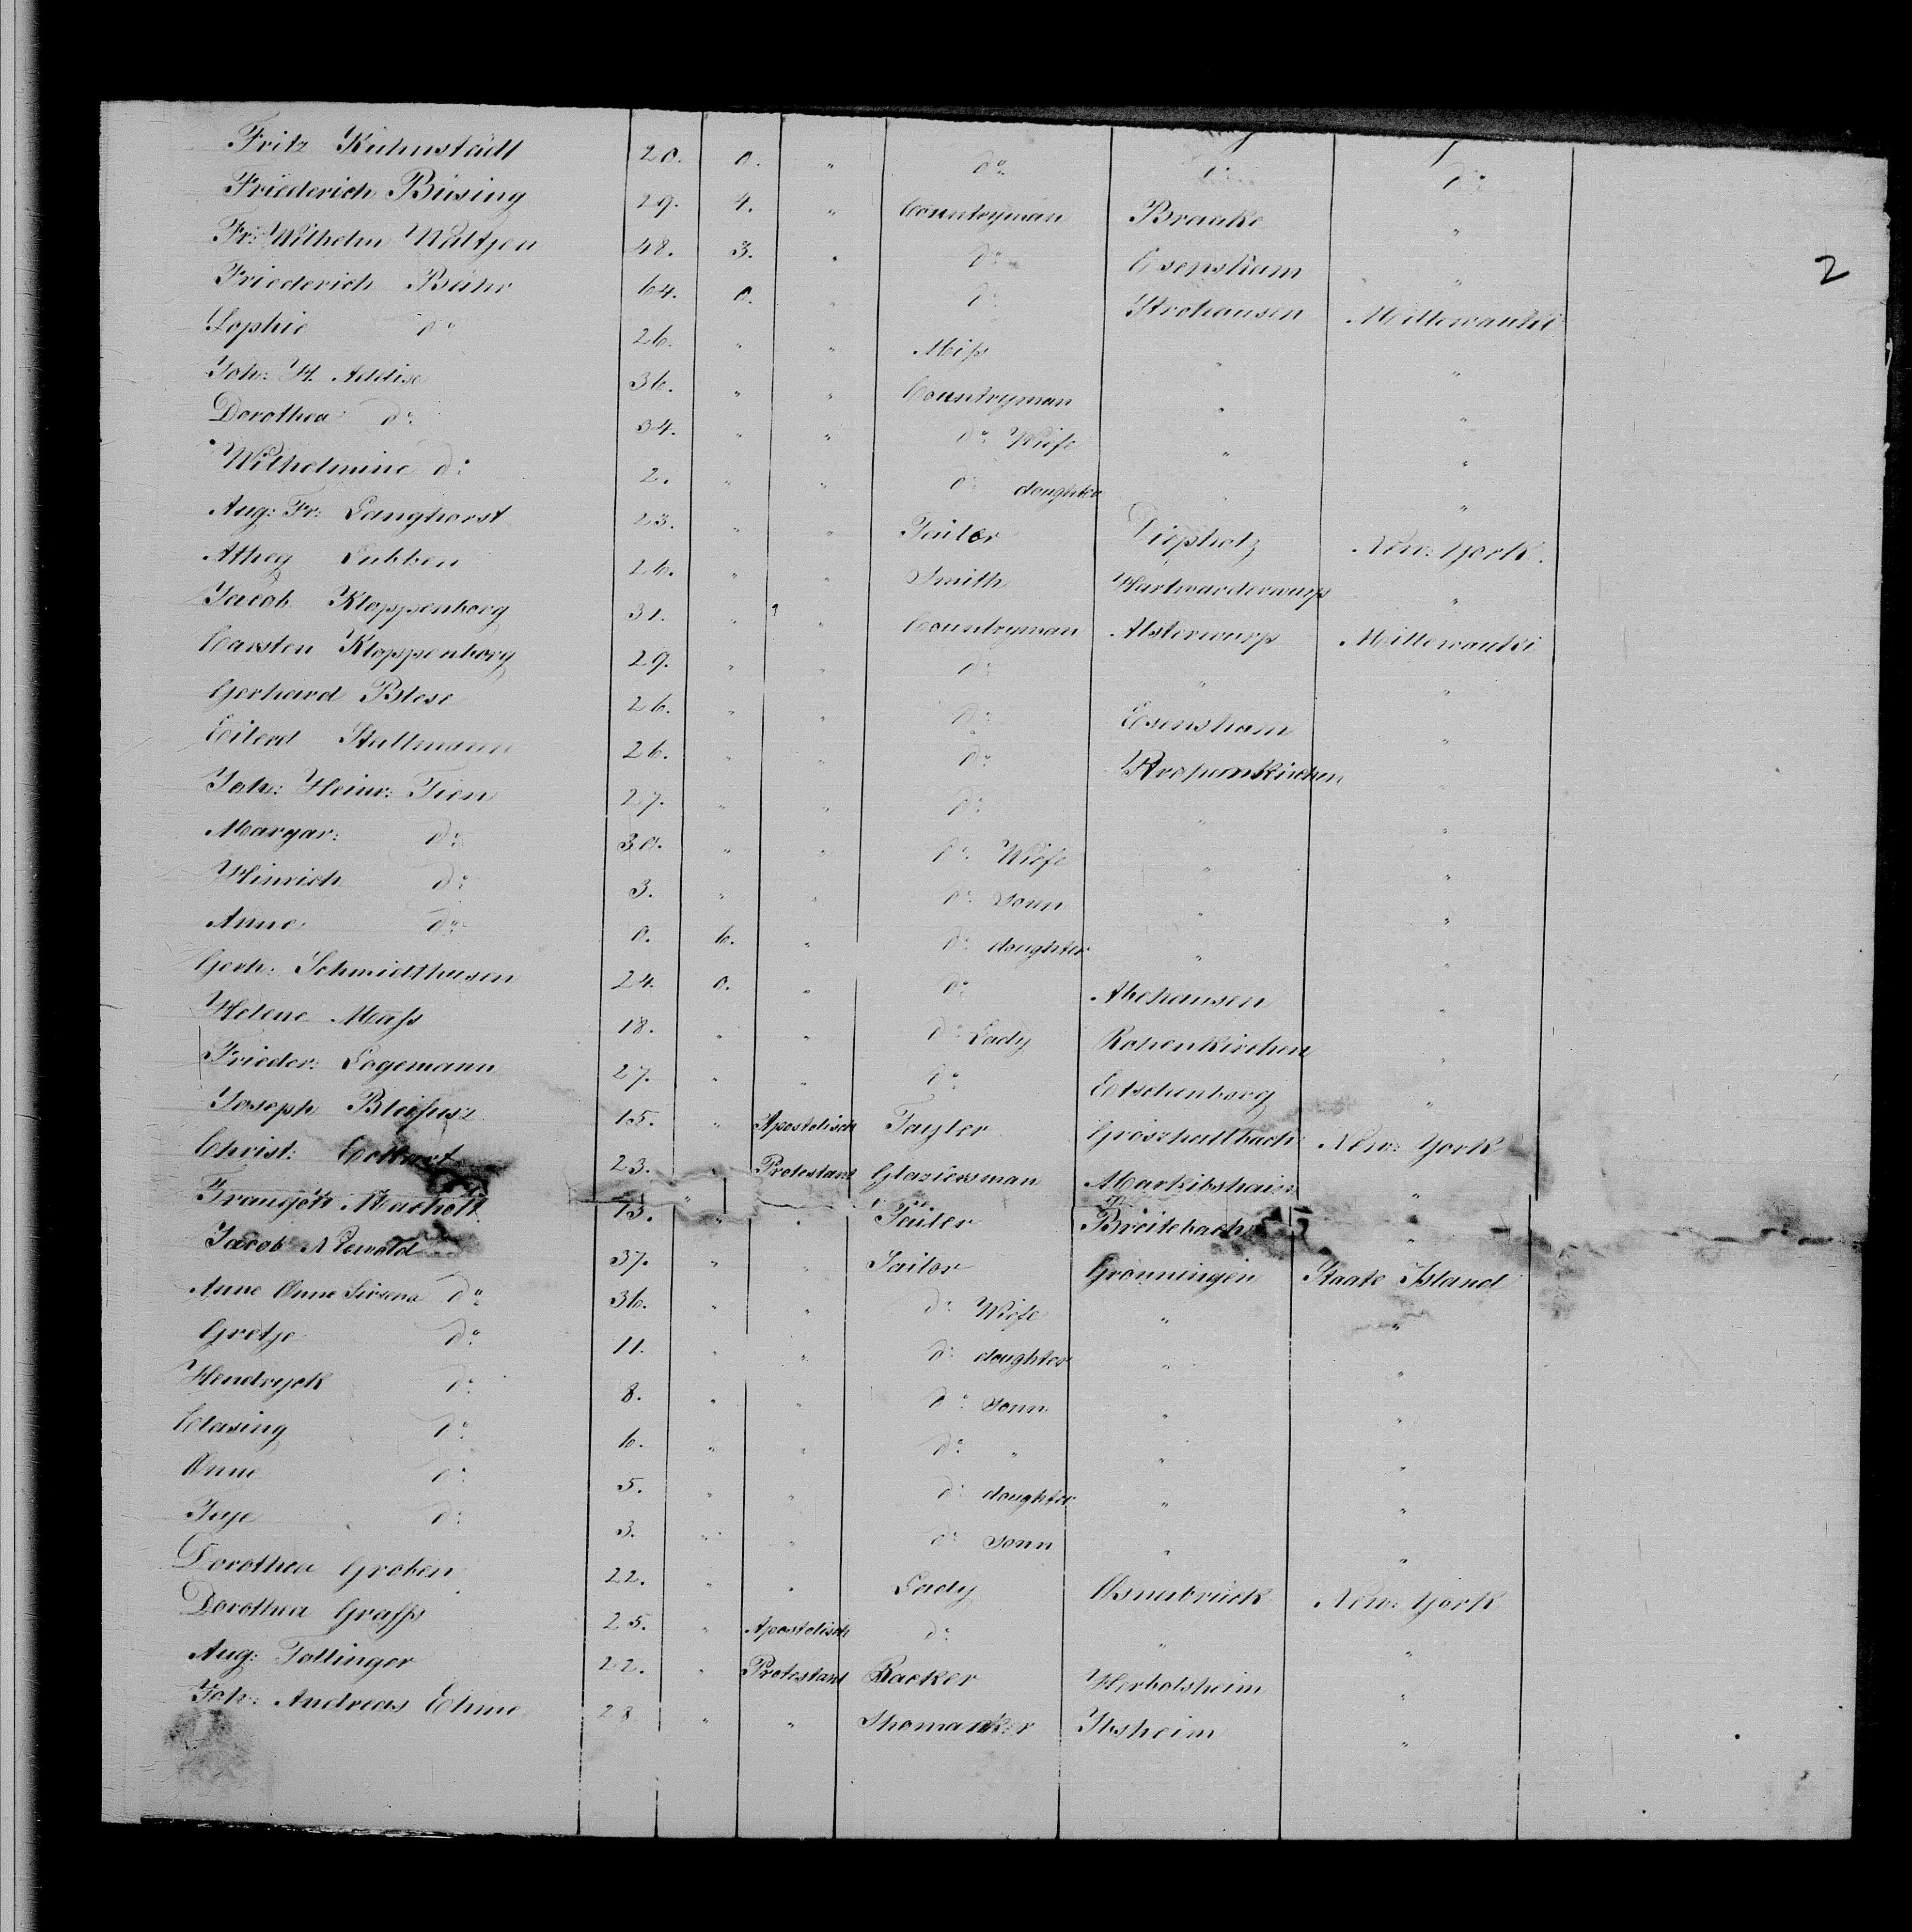 Fritz Kühnstädt 20. 0. " do. do. do.
Friederich Büsing 29. 4. " Countryman Braake "
Fr: Wilhelm Wultjen 48. 3. " do. Esensham "
Friederich Bähr 64. 0. " do. Strohausen Millewauki
Sophie do. 26. " " Miss " "
Joh: H. Addise 36. " " Countryman " "
Dorothea do. 34. " " do. Wiefe " "
Wilhelmine do. 2. " " do. doughter " "
Aug: Fr: Langhorst 23. " " Tailor Diepholz New: York.
Atheg Lubben 26. " " Smith Hartwarderwurp "
Jacob Kloppenborg 31. " " Countryman Alsterwurp Millewauki
Carsten Kloppenborg 29. " " do. " "
Gerhard Blese 26. " " do. Esensham "
Eilerd Stallmann 26. " " do. Rodenkirchen "
Joh: Heinr: Tien 27. " " do. " "
Margar: do. 30. " " do. Wiefe " "
Hinrich do. 3. " " do. sonn " "
Anne do. 0. 6. " do. doughter " "
Gerh: Schmidthusen 24. 0. " do. Abehausen "
Helene Mass 18. " " do. Lady Rodenkirchen "
Frieder: Logemann 27. " " do. Eltschenborg "
Joseph Bleifusz 15. " Apostolisch Tayler Groszhallbach New: York
Christ: 23. " Protestant Glaziersman "
Machott 13. " " Tailer Breitebach "
Jacob 37. " " Sailor Gronningen Staate Island
Anne Onne Sirsena do. 36. " " do. Wiefe " "
Gretje do. 11. " " do. doughter " "
Hendryck do. 8. " " do. sonn " "
Clasing do. 6. " " do. " " "
Onne do. 5. " " do. doughter " "
do. 3. " " do. sonn " "
Dorothea Groben 22. " " Lady Osnabrück New: York
Dorothea Grafss 25. " Apostolisch do. " "
Aug: Tollinger 22. " Protestant Backer Herbolsheim "
Joh: Andreas Ehme 28 " " Shomacker Ibsheim "
2